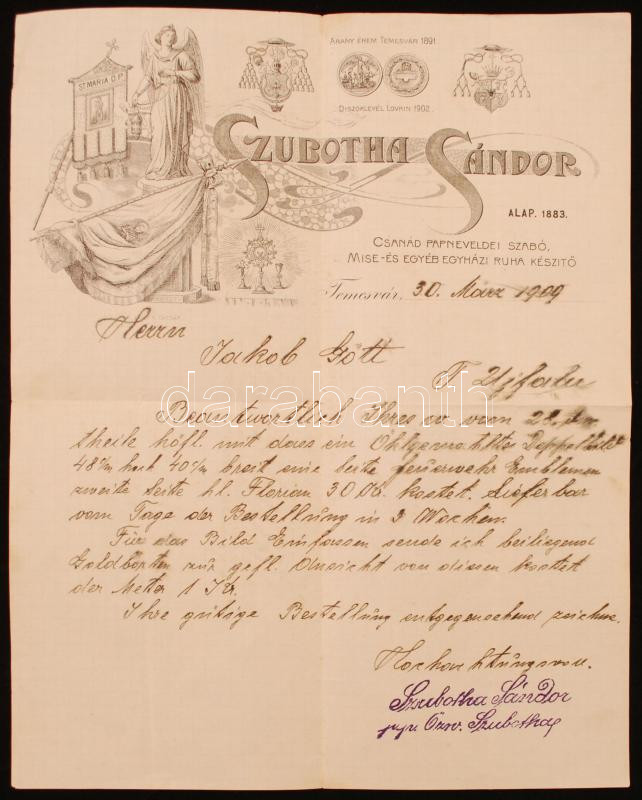 ARANY ÉREM TEMESVÁR 1891.
ST MARIA O.P.
DISZOKLEVÉL LOVRIN 1902.
SZUBOTHA SÁNDOR
ALAP. 1883.
CSANÁD PAPNEVELDEI SZABÓ,
MISE- ÉS EGYÉB EGYHÁZI RUHA KÉSZITŐ
Temesvár, 30. März 1909
Herrn
Jakob Gött
T. Ujfalu
darabanth
Beantwortlich Ihres vom 28.
theile höfl. mit dass ein Öhlgemahltes Doppelbild
48 c/m hoch 40 c/m breit eine Seite Feuerwehr Emblemen
zweite Seite hl. Florian 30 Kr. kostet. Lieferbar
vom Tage der Bestellung in 3 Wochen.
Für das Bild Einfassen sende ich beiliegend
Goldborten zur gefl. Ansicht von diesen kostet
der Meter 1 Kr.
Ihre gütige Bestellung entgegensehend zeichne
Hochachtungsvoll
Szubotha Sándor
Özv. Szubotha